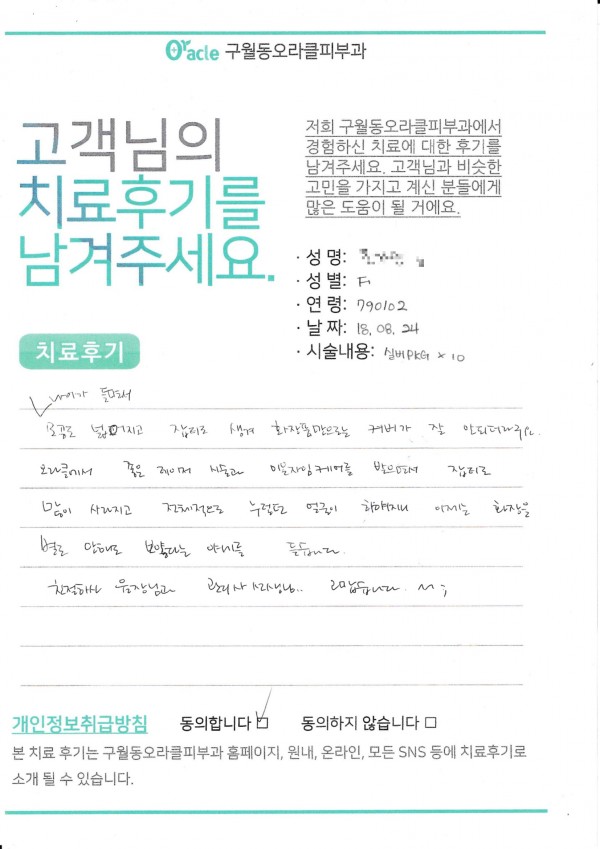 Oracle 구월동오라클피부과
고객님의
치료후기를
남겨주세요.
저희 구월동오라클피부과에서
경험하신 치료에 대한 후기를
남겨주세요. 고객님과 비슷한
고민을 가지고 계신 분들에게
많은 도움이 될 거에요.
· 성 명:
· 성 별: F
· 연 령: 790102
· 날 짜: 18. 08. 24
· 시술내용: 실버PKG × 10
치료후기
나이가 들면서
모공도 넓어지고 잡티도 생겨 화장품만으로는 커버가 잘 안되더라구요.
오라클에서 좋은 레이저 시술과 이온자임케어를 받으면서 잡티도
많이 사라지고 전체적으로 누렇던 얼굴이 하얘지니 이제는 화장을
별로 안해도 뽀얗다는 얘기를 듣습니다.
친절하신 원장님과 관리사 선생님.. 고맙습니다. ^^;
개인정보취급방침 동의합니다 ☑ 동의하지 않습니다 □
본 치료 후기는 구월동오라클피부과 홈페이지, 원내, 온라인, 모든 SNS 등에 치료후기로
소개 될 수 있습니다.